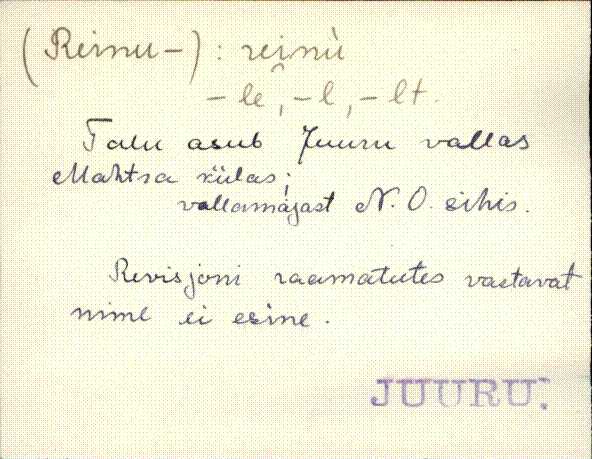 (Reinu-) : reinù
- lê, -l, -lt.
Talu asub Juuru vallas
Mahtra külas;
vallamajast N. O. sihis.
Revisjoni raamatutes vastavat
nime ei esine.
JUURU.